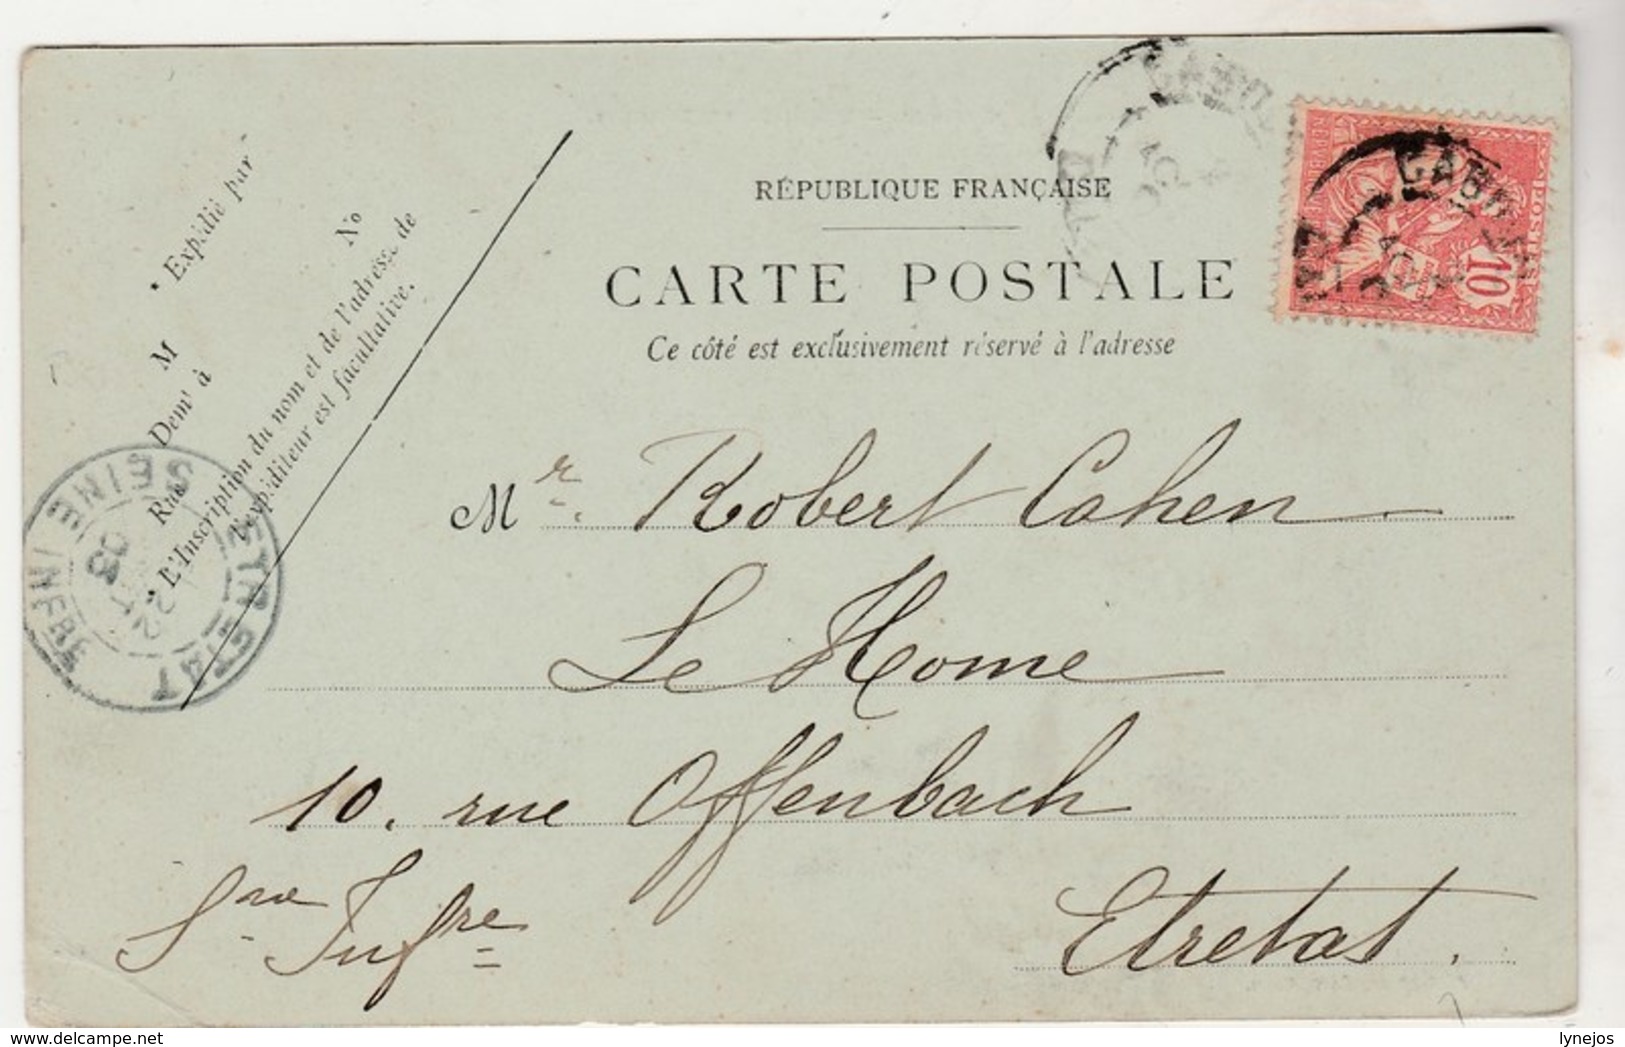 * Expédié par
M
Demt à
Rue
No
* L'Inscription du nom et de l'adresse de
l'expéditeur est facultative.
RÉPUBLIQUE FRANÇAISE
CARTE POSTALE
Ce côté est exclusivement réservé à l'adresse
CABO
CABO
POSTES
10
Mr. Robert Cahen
Le Home
10. rue Offenbach
Sne Infre
Etretat.
ETRETAT
SEINE INFRE
22
03
lynejos